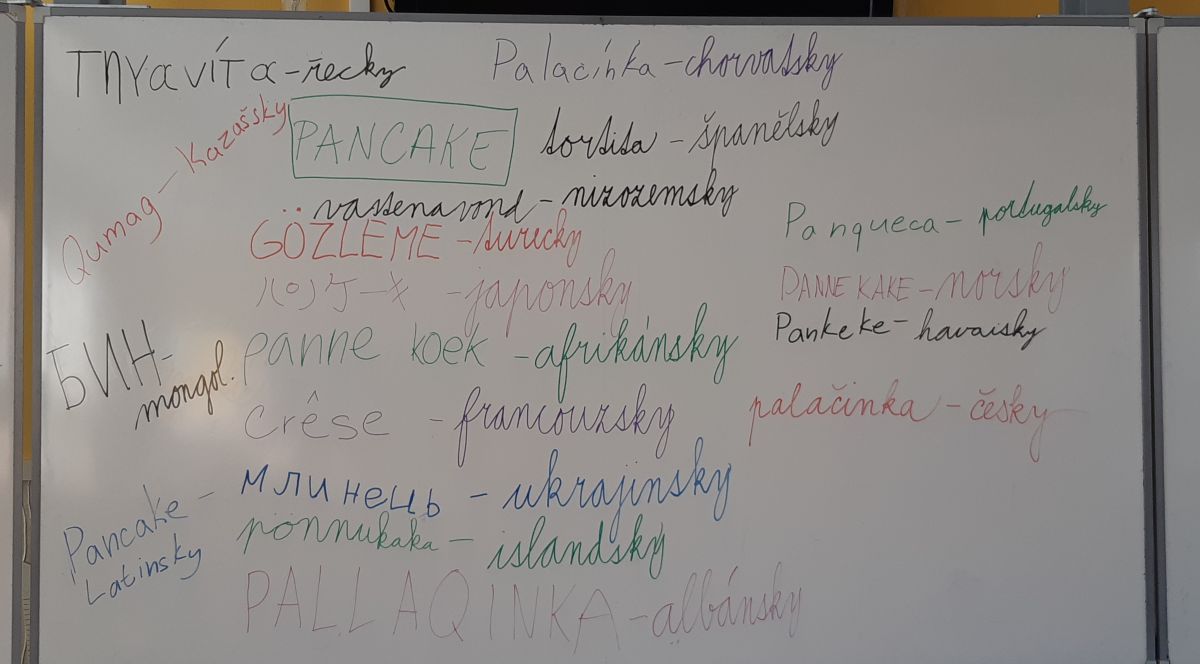 Τηγανίτα - řecky
Palačinka - chorvatsky
Qumag - Kazašsky
PANCAKE
tortita - španělsky
vastenavond - nizozemsky
GÖZLEME - turecky
Panqueca - portugalsky
パンケーキ - japonsky
PANNEKAKE - norsky
БИН - mongol.
panne koek - afrikánsky
Pankeke - havaisky
crêse - francouzsky
palačinka - česky
млинець - ukrajinsky
Pancake - Latinsky
pönnukaka - islandsky
PALLAQINKA - albánsky